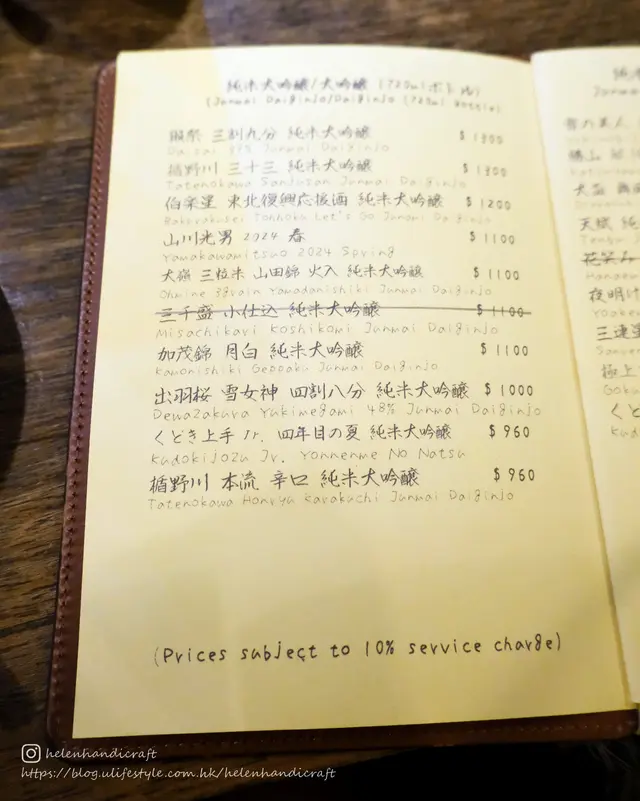 純米大吟醸/大吟醸 (720mlボトル)
(Junmai Daiginjo/Daiginjo (720ml Bottle)
獺祭 三割九分 純米大吟醸 $1300
Dassai 39% Junmai Daiginjo
楯野川 三十三 純米大吟醸 $1300
Tatenokawa Sanjusan Junmai Daiginjo
伯楽星 東北復興応援酒 純米大吟醸 $1200
Hakurakusei Tohhoku Let's Go Junami Daiginjo
山川光男 2024 春 $1100
Yamakawamitsuo 2024 Spring
大嶺 三粒米 山田錦 火入 純米大吟醸 $1100
Ohmine 3grain Yamadanishiki Junmai Daiginjo
三千盛 小仕込 純米大吟醸 $1100
Misachikari Koshikomi Junmai Daiginjo
加茂錦 月白 純米大吟醸 $1100
Kamonishiki Geppaku Junmai Daiginjo
出羽桜 雪女神 四割八分 純米大吟醸 $1000
Dewazakura Yukimegami 48% Junmai Daiginjo
くどき上手 Jr. 四年目の夏 純米大吟醸 $960
Kudokijozu Jr. Yonnenme No Natsu
楯野川 本流 辛口 純米大吟醸 $960
Tatenokawa Honryu Karakuchi Junmai Daiginjo
(Prices subject to 10% service charge)
純
Junma
雪の美人
勝山
大盃
天賦 純
Tengu
花笑み
Hanaem
夜明け
Yoake
三連星
Sanren
極上
Goku
くど
Kud
helenhandicraft
https://blog.ulifestyle.com.hk/helenhandicraft